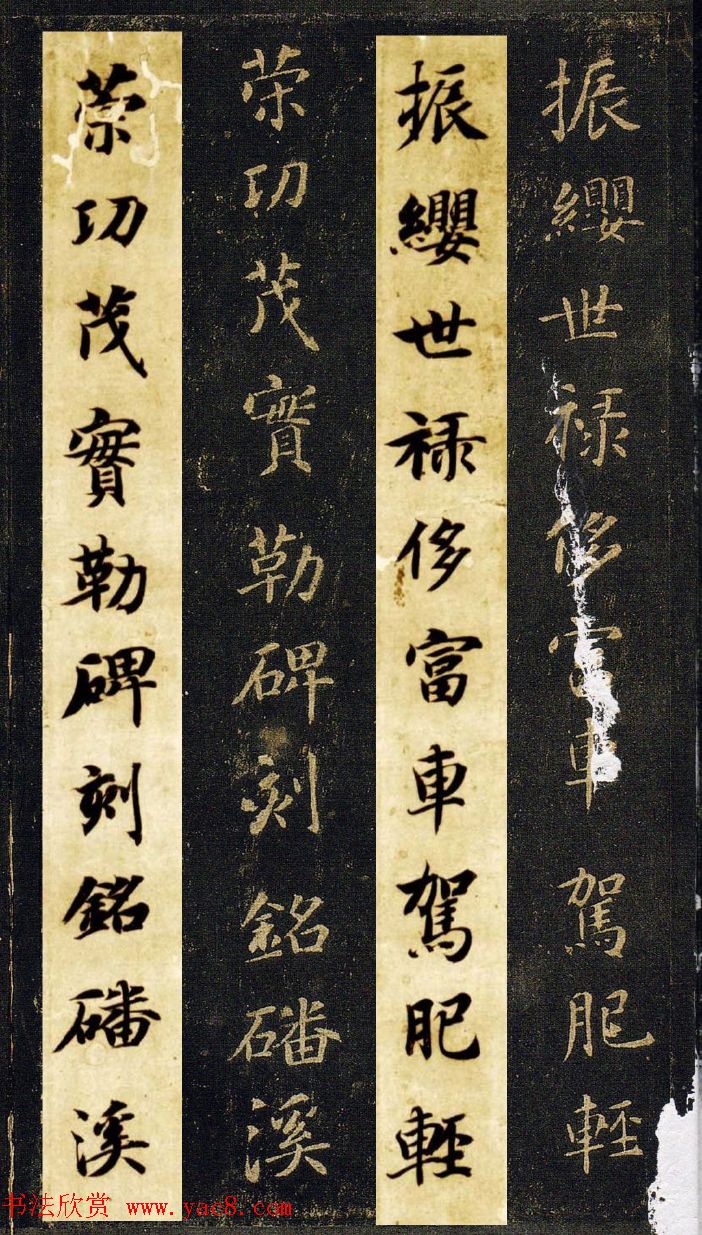 振纓世禄侈富車駕肥輕
振纓世禄侈富車駕肥輕
荣功茂實勒碑刻銘磻溪
荣功茂實勒碑刻銘磻溪
书法欣赏 www.yac8.com